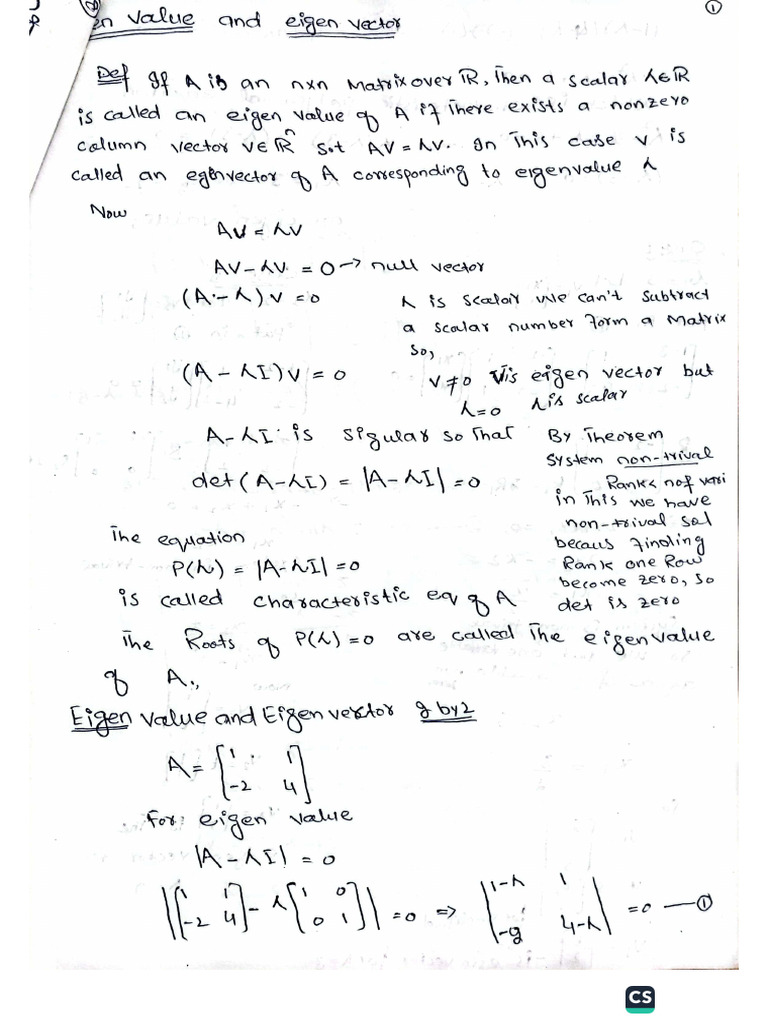 ①
en value and eigen vector
Def If A is an nxn Matrix over ℝ, Then a scalar λ∈ℝ
is called an eigen value of A if There exists a nonzero
column vector V∈ℝⁿ s.t AV = λV. In This case v is
called an egenvector of A corresponding to eigenvalue λ
Now
AV = λV
AV - λV = 0 → null vector
(A - λ) v = 0
λ is scalar We can't subtract
a scalar number form a Matrix
So,
(A - λI) v = 0
V ≠ 0 V is eigen vector but
λ=0 λ is scalar
A - λI is sigular so That
det (A - λI) = |A - λI| = 0
By Theorem
System non-trival
Rank < n of vari
in This we have
non-trival sol
becaus finding
Rank one Row
become zero, so
det is zero
The equation
P(λ) = |A - λI| = 0
is called characteristic eq of A
The Roots of P(λ) = 0 are called The eigen value
of A.,
Eigen value and Eigen vector 2 by 2
A = [1 1
-2 4]
For: eigen value
|A - λI| = 0
|[1 1 -2 4] - λ[1 0 0 1]| = 0 => |1-λ 1 -2 4-λ| = 0 — ①
CS